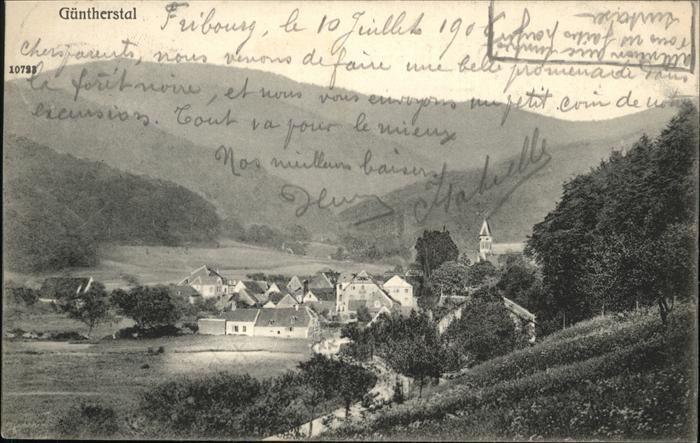 Güntherstal
10793
Fribourg, le 10 Juillet 190
Chers parents, nous venons de faire une belle promenade dans
la forêt noire, et nous vous envoyons un petit coin de notre
excursion. Tout va pour le mieux
Nos meilleurs baisers